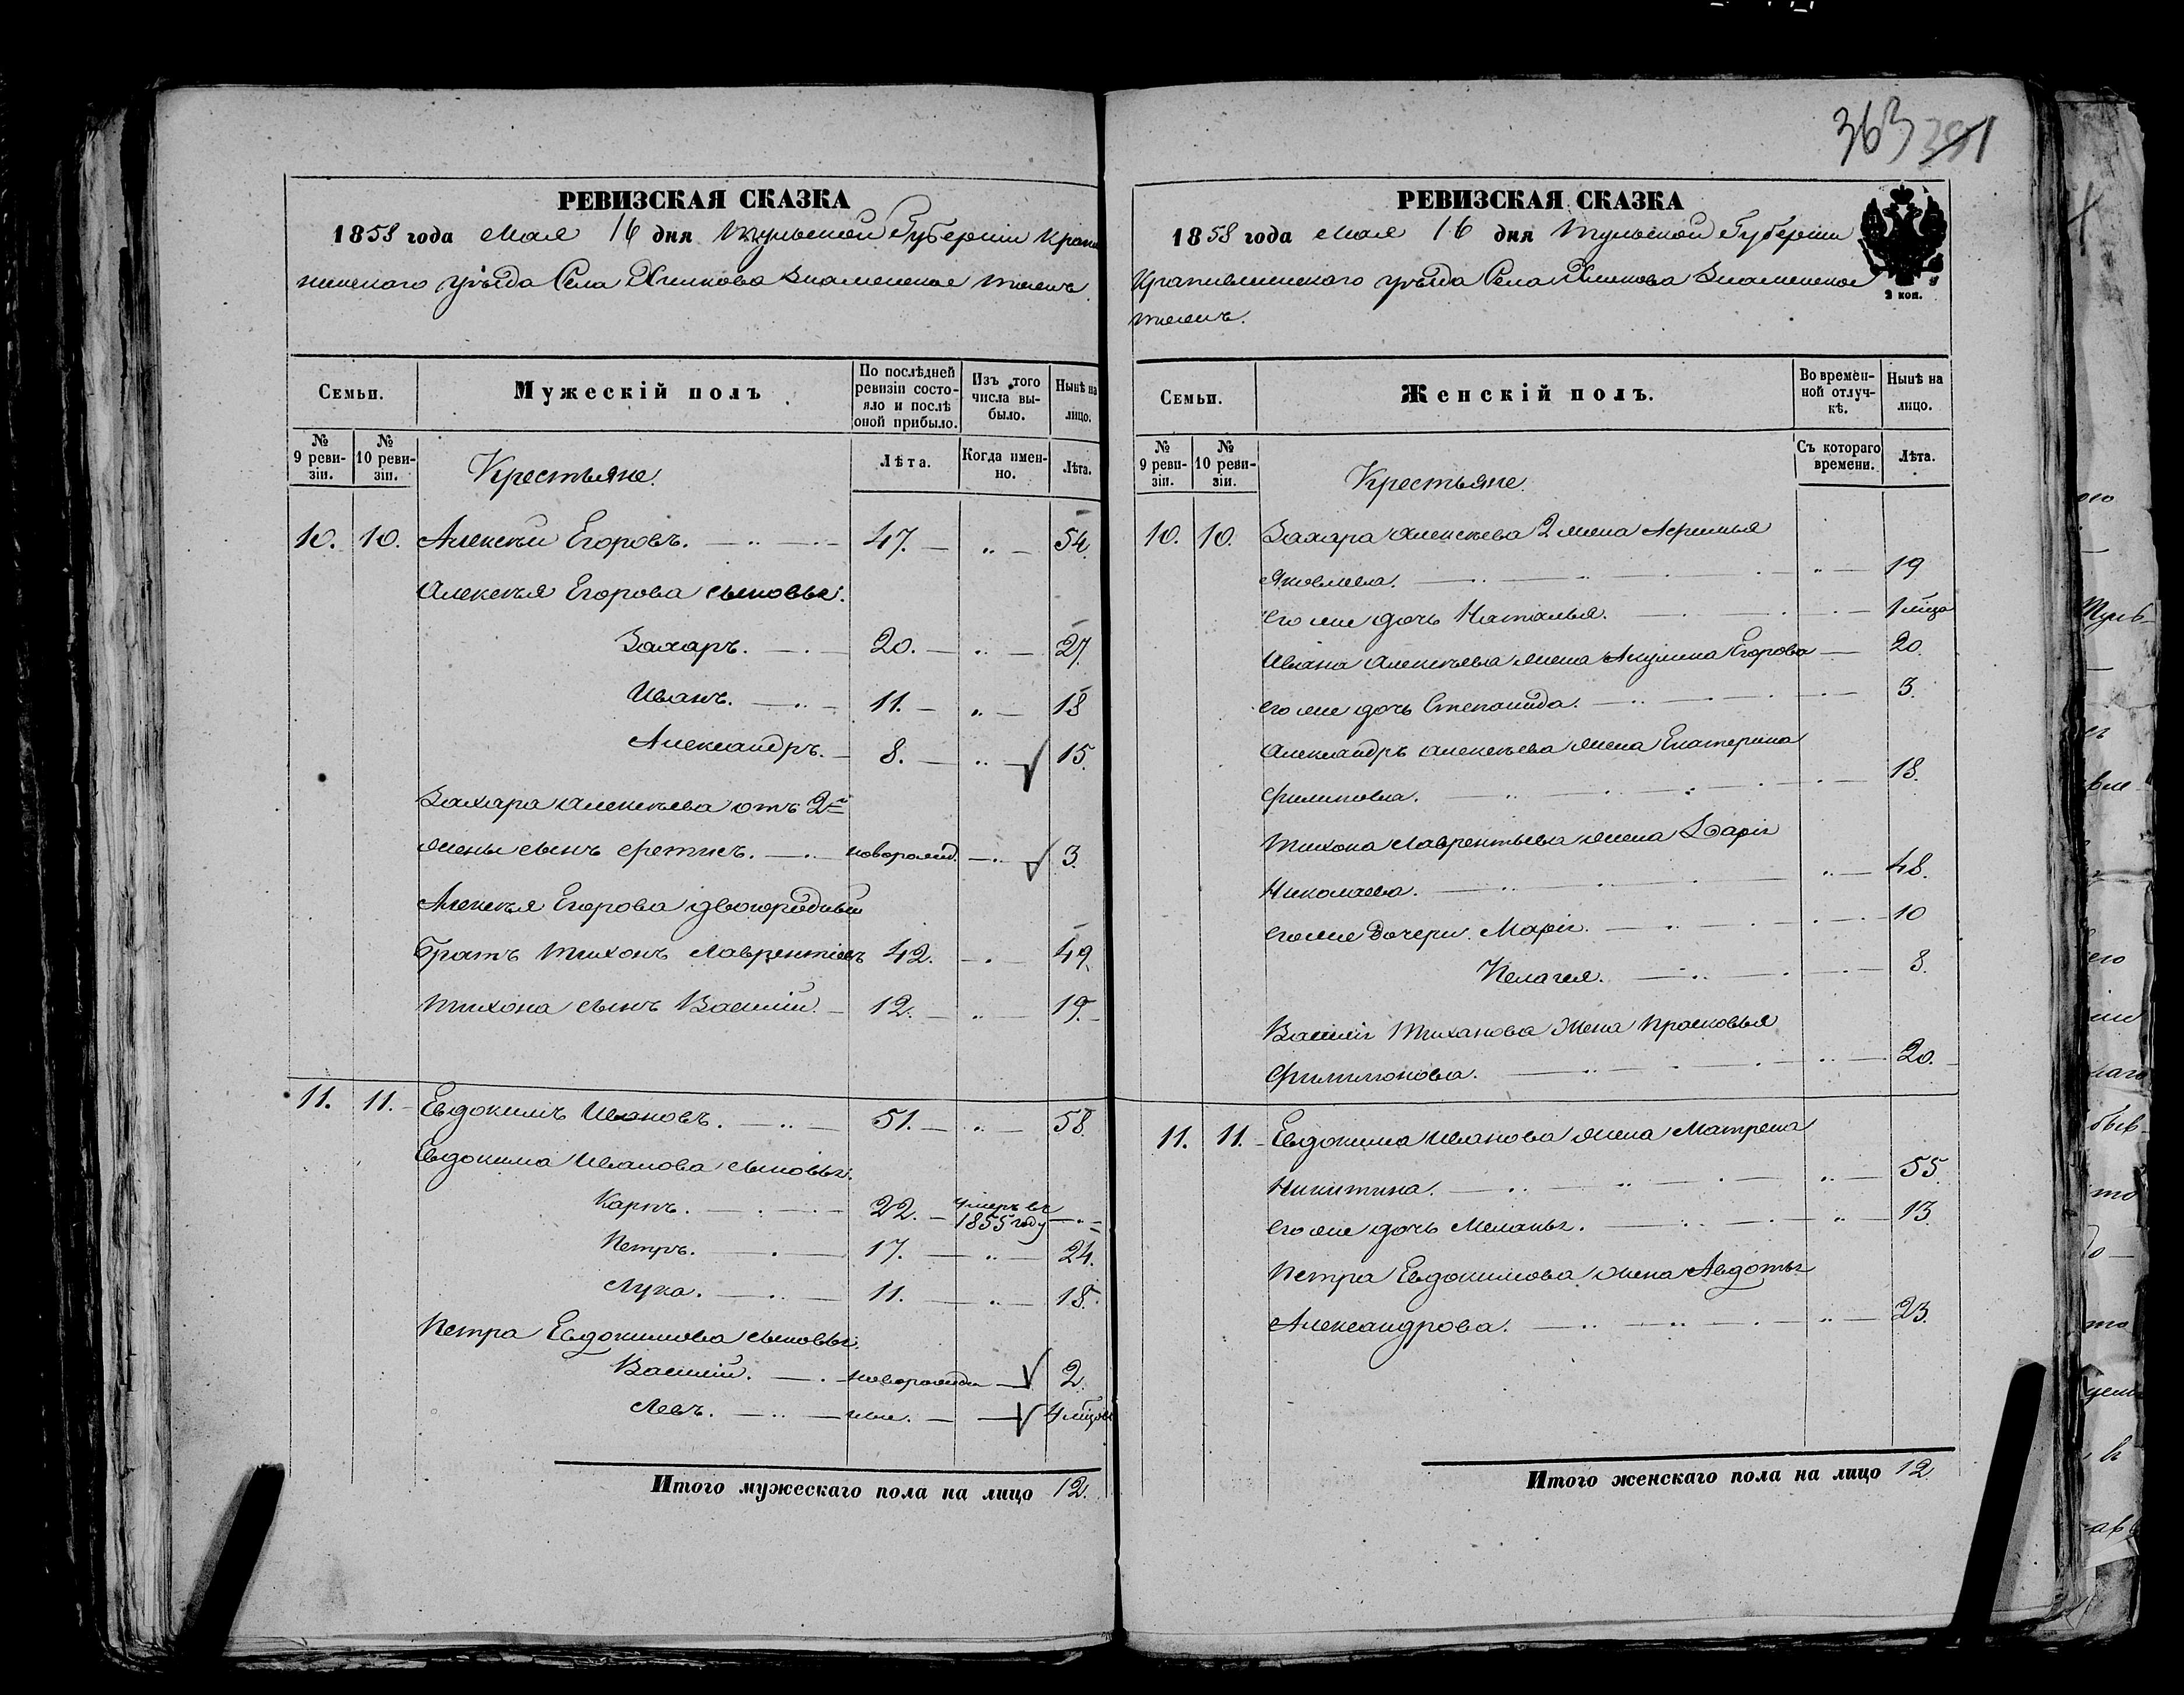 363 391
РЕВИЗСКАЯ СКАЗКА
1858 года Мая 16 дня Тульской Губерніи Крапи
венского уѣзда Села Хилкова Знаменское тожъ
Семьи.
Мужескій полъ
По послѣдней ревизіи состояло и послѣ оной прибыло.
Изъ того числа выбыло.
Нынѣ на лицо.
№ 9 ревизіи.
№ 10 ревизіи.
Крестьяне.
Лѣта.
Когда именно.
Лѣта.
10. 10. Алексѣй Егоровъ. 47. " 54.
Алексѣя Егорова сыновья.
Захаръ. 20. " 27.
Иванъ. 11. " 18
Александръ. 8. " 15.
Захара Алексѣева отъ 2й
жены сынъ Фетисъ. новорожд. " 3.
Алексѣя Егорова двоюродный
братъ Тихонъ Лаврентіевъ 42. " 49.
Тихона сынъ Василій. 12. " 19.
11. 11. Евдокимъ Ивановъ. 51. " 58.
Евдокима Иванова сыновья.
Карпъ. 22. умеръ въ 1855 году "
Петръ. 17. " 24.
Лука. 11. " 18.
Петра Евдокимова сыновья.
Василій. новорожден 2.
Левъ. тоже. 4 мѣсяц
Итого мужескаго пола на лицо 12.
РЕВИЗСКАЯ СКАЗКА
2 коп.
1858 года Мая 16 дня Тульской Губерніи
Крапивенского уѣзда Села Хилкова Знаменское
тожъ.
Семьи.
Женскій полъ.
Во временной отлучкѣ.
Нынѣ на лицо.
№ 9 ревизіи.
№ 10 ревизіи.
Крестьяне.
Съ котораго времени.
Лѣта.
10. 10. Захара Алексѣева 2 жена Афимья
Яковлева. " 19
его же дочь Наталья. " 1 мѣсяц
Ивана Алексѣева жена Акулина Егорова 20.
его же дочь Степанида. " 3.
Александръ Алексѣева жена Екатерина
Филипова. " 18.
Тихона Лаврентьева жена Дарія
Николаева. " 48.
его же дочери. Марія. " 10
Пелагея. " 8.
Василія Тиханова жена Прасковья
Филимонова. " 20.
11. 11. Евдокима Иванова жена Матрена
Никитина. " 55.
его же дочь Меланья. " 13.
Петра Евдокимова жена Авдотья
Александрова. " 23.
Итого женскаго пола на лицо 12.